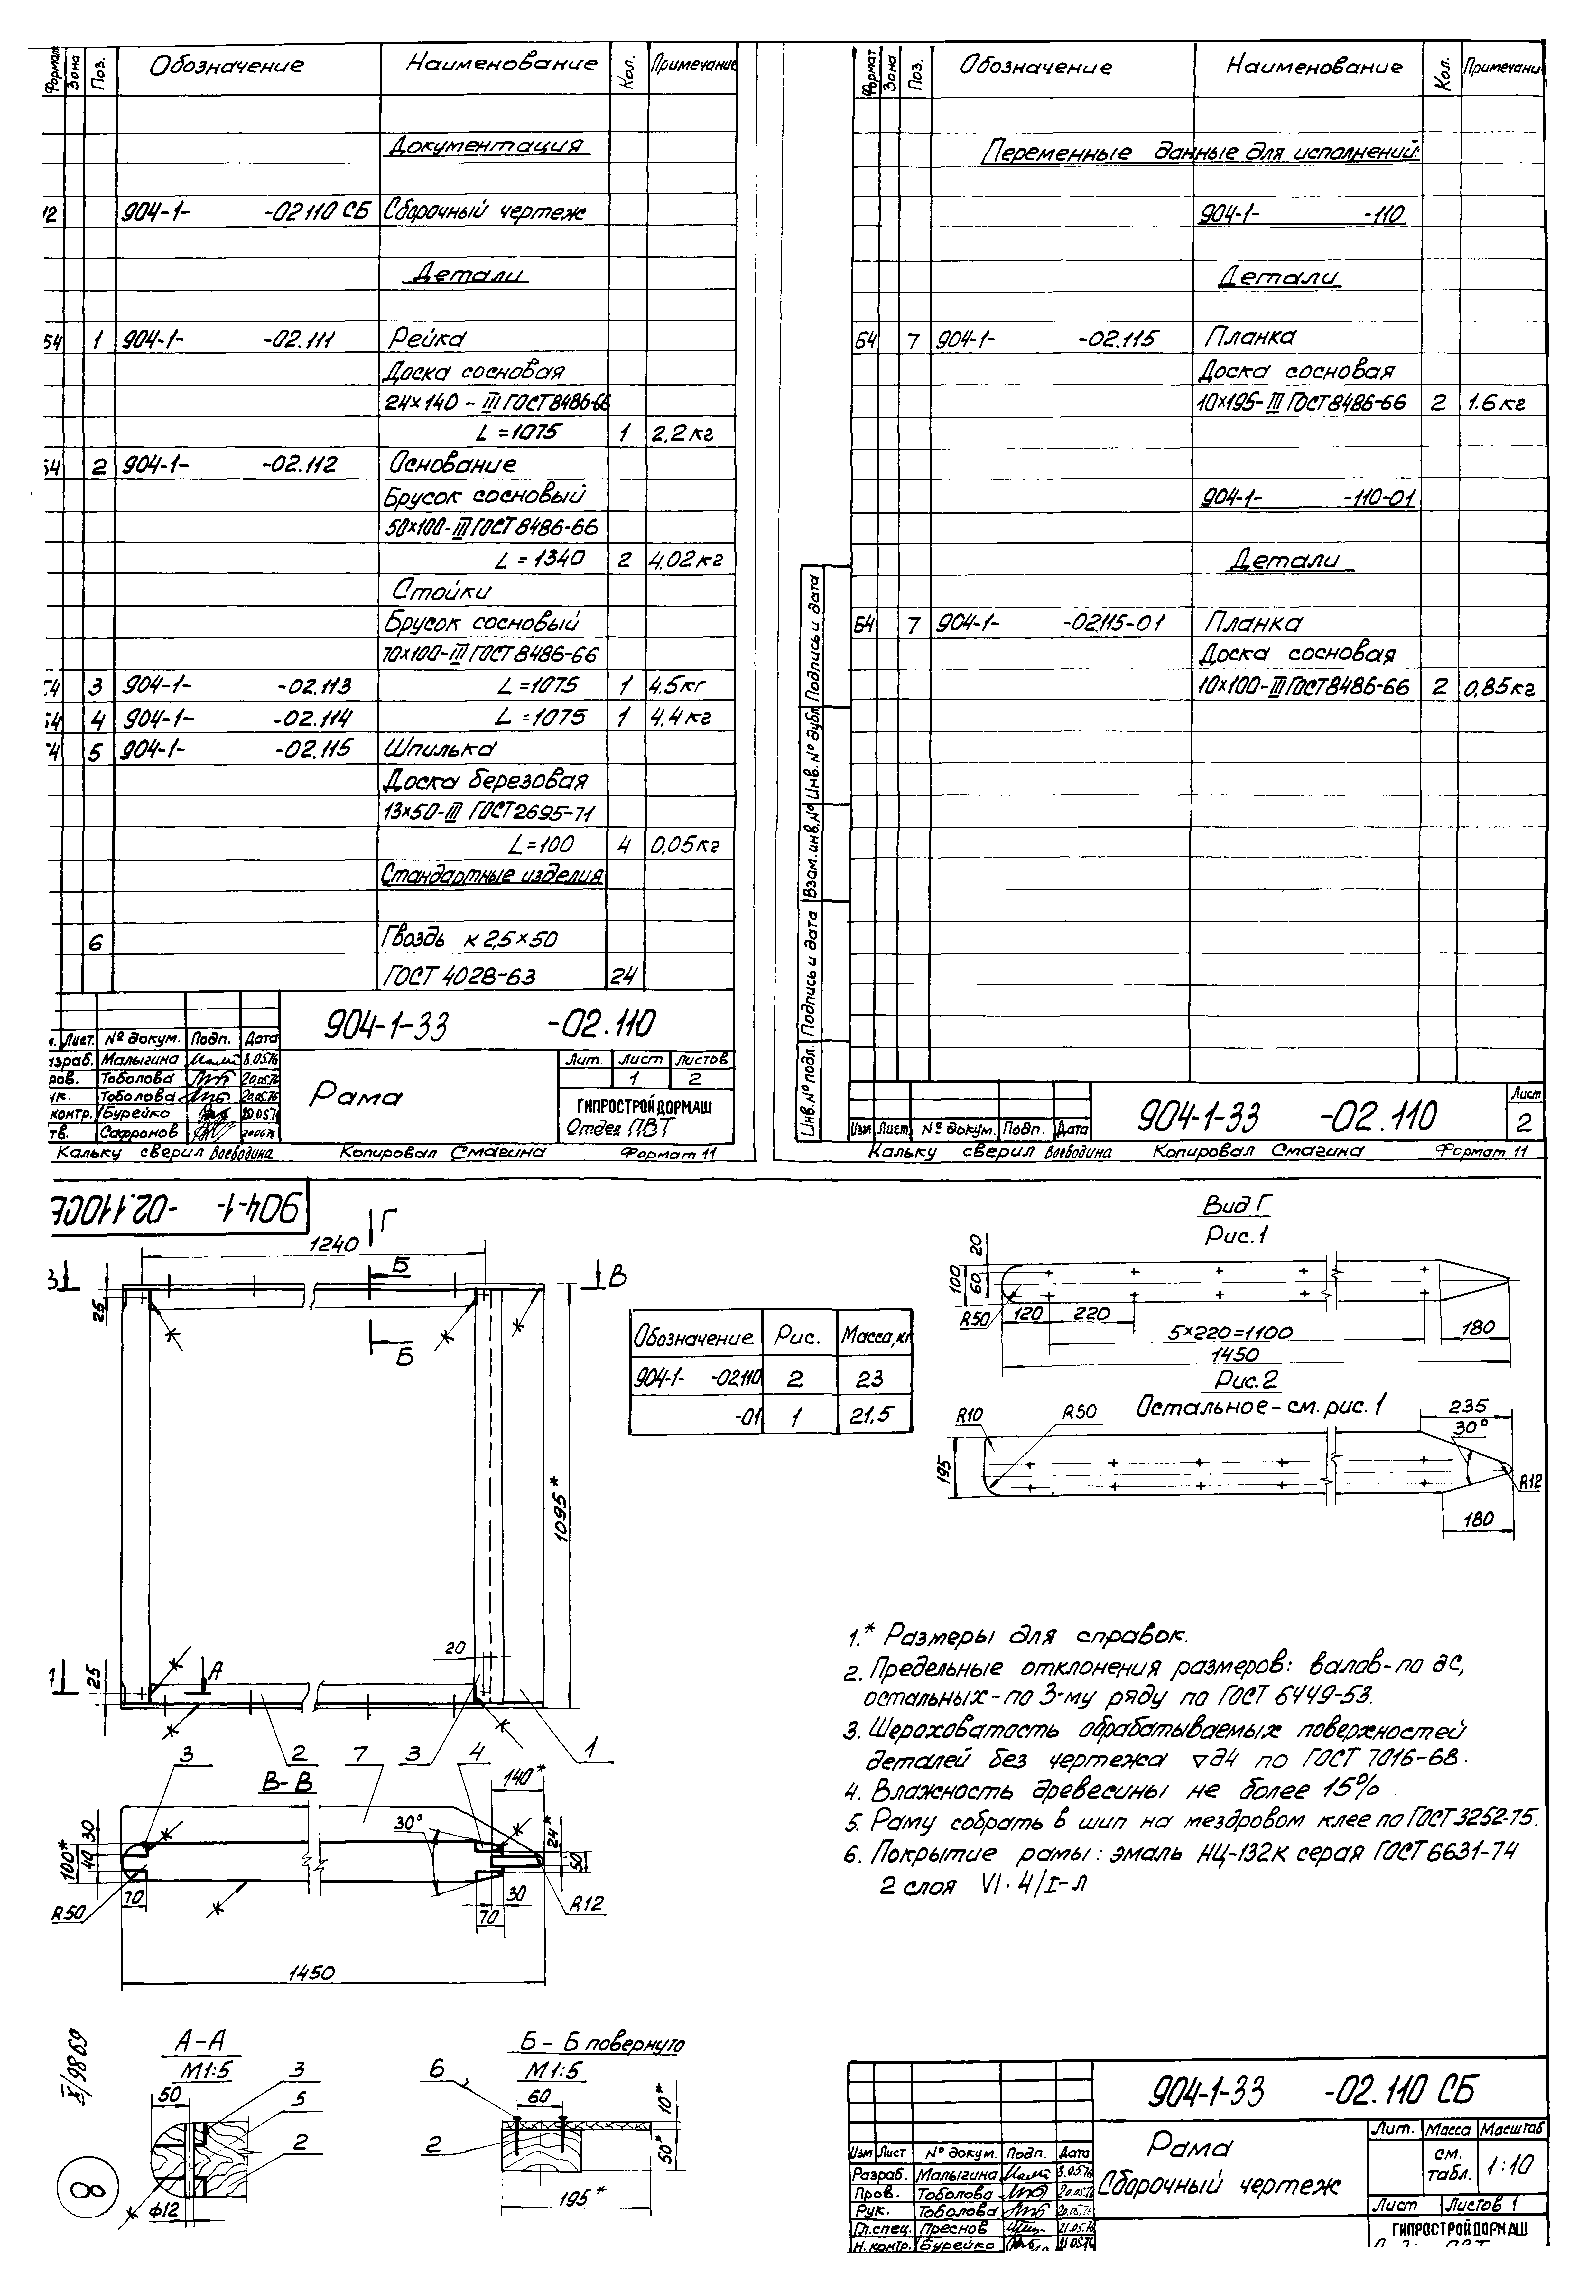 Формат Зона Поз. Обозначение Наименование Кол. Примечание
Документация
12 904-1- -02110 СБ Сборочный чертеж
Детали
Б4 1 904-1- -02.111 Рейка
Доска сосновая
24×140 - III ГОСТ 8486-66
L = 1075 1 2,2 кг
Б4 2 904-1- -02.112 Основание
Брусок сосновый
50×100-III ГОСТ 8486-66
L = 1340 2 4.02 кг
Стойки
Брусок сосновый
70×100-III ГОСТ 8486-66
3 904-1- -02.113 L=1075 1 4.5 кг
Б4 4 904-1- -02.114 L=1075 1 4.4 кг
5 904-1- -02.115 Шпилька
Доска березовая
13×50-III ГОСТ 2695-71
L=100 4 0,05 кг
Стандартные изделия
6 Гвоздь К 2,5×50
ГОСТ 4028-63 24
904-1-33 -02.110
Лист. № докум. Подп. Дата
Разраб. Малыгина 8.05.76
ров. Тоболова 20.05.76
ук. Тоболова 20.05.76
контр. Бурейко 20.05.76
тв. Сафронов
Рама
Лит. Лист Листов
1 2
ГИПРОСТРОЙДОРМАШ
Отдел ПВТ
Кальку сверил Воеводина Копировал Смагина Формат 11
Формат Зона Поз. Обозначение Наименование Кол. Примечани
Переменные данные для исполнений:
904-1- -110
Детали
Б4 7 904-1- -02.115 Планка
Доска сосновая
10×195-III ГОСТ 8486-66 2 1.6 кг
904-1- -110-01
Детали
Б4 7 904-1- -02.115-01 Планка
Доска сосновая
10×100-III ГОСТ 8486-66 2 0,85 кг
Инв.№ подл. Подпись и дата Взам.инв.№ Инв.№ дубл. Подпись и дата
Изм Лист № докум. Подп. Дата
904-1-33 -02.110
Лист
2
Кальку сверил Воеводина Копировал Смагина Формат 11
904-1- -02.110СБ
Г
1240
Б
В
25
Б
1095*
20
А
25
3 2 7 3 4 1
Обозначение Рис. Масса, кг
904-1- -02110 2 23
-01 1 21,5
Вид Г
Рис. 1
20
100
60
R50
120 220
5×220=1100
180
1450
Рис. 2
Остальное - см. рис. 1
R10 R50 235
30°
195
R12
180
В-В
140*
30
100*
40
30°
24*
50
70
R50
30
70
R12
1450
1.* Размеры для справок.
2. Предельные отклонения размеров: валов-по д5,
остальных - по 3-му ряду по ГОСТ 6449-53.
3. Шероховатость обрабатываемых поверхностей
деталей без чертежа ▽д4 по ГОСТ 7016-68.
4. Влажность древесины не более 15%.
5. Раму собрать в шип на мездровом клее по ГОСТ 3252-75.
6. Покрытие рамы: эмаль НЦ-132к серая ГОСТ 6631-74
2 слоя VI·4/I-Л
А-А
М1:5
50
3
5
2
ф12
Б - Б повернуто
М1:5
6
60
2
10*
50*
195*
X/9869
8
904-1-33 -02.110 СБ
Изм Лист № докум. Подп. Дата
Разраб. Малыгина 8.05.76
Пров. Тоболова 20.05.76
Рук. Тоболова 20.05.76
Гл.спец. Преснов 21.05.76
Н. контр. Бурейко 21.05.76
Рама
Сборочный чертеж
Лит. Масса Масштаб
см.
табл. 1:10
Лист Листов 1
ГИПРОСТРОЙДОРМАШ